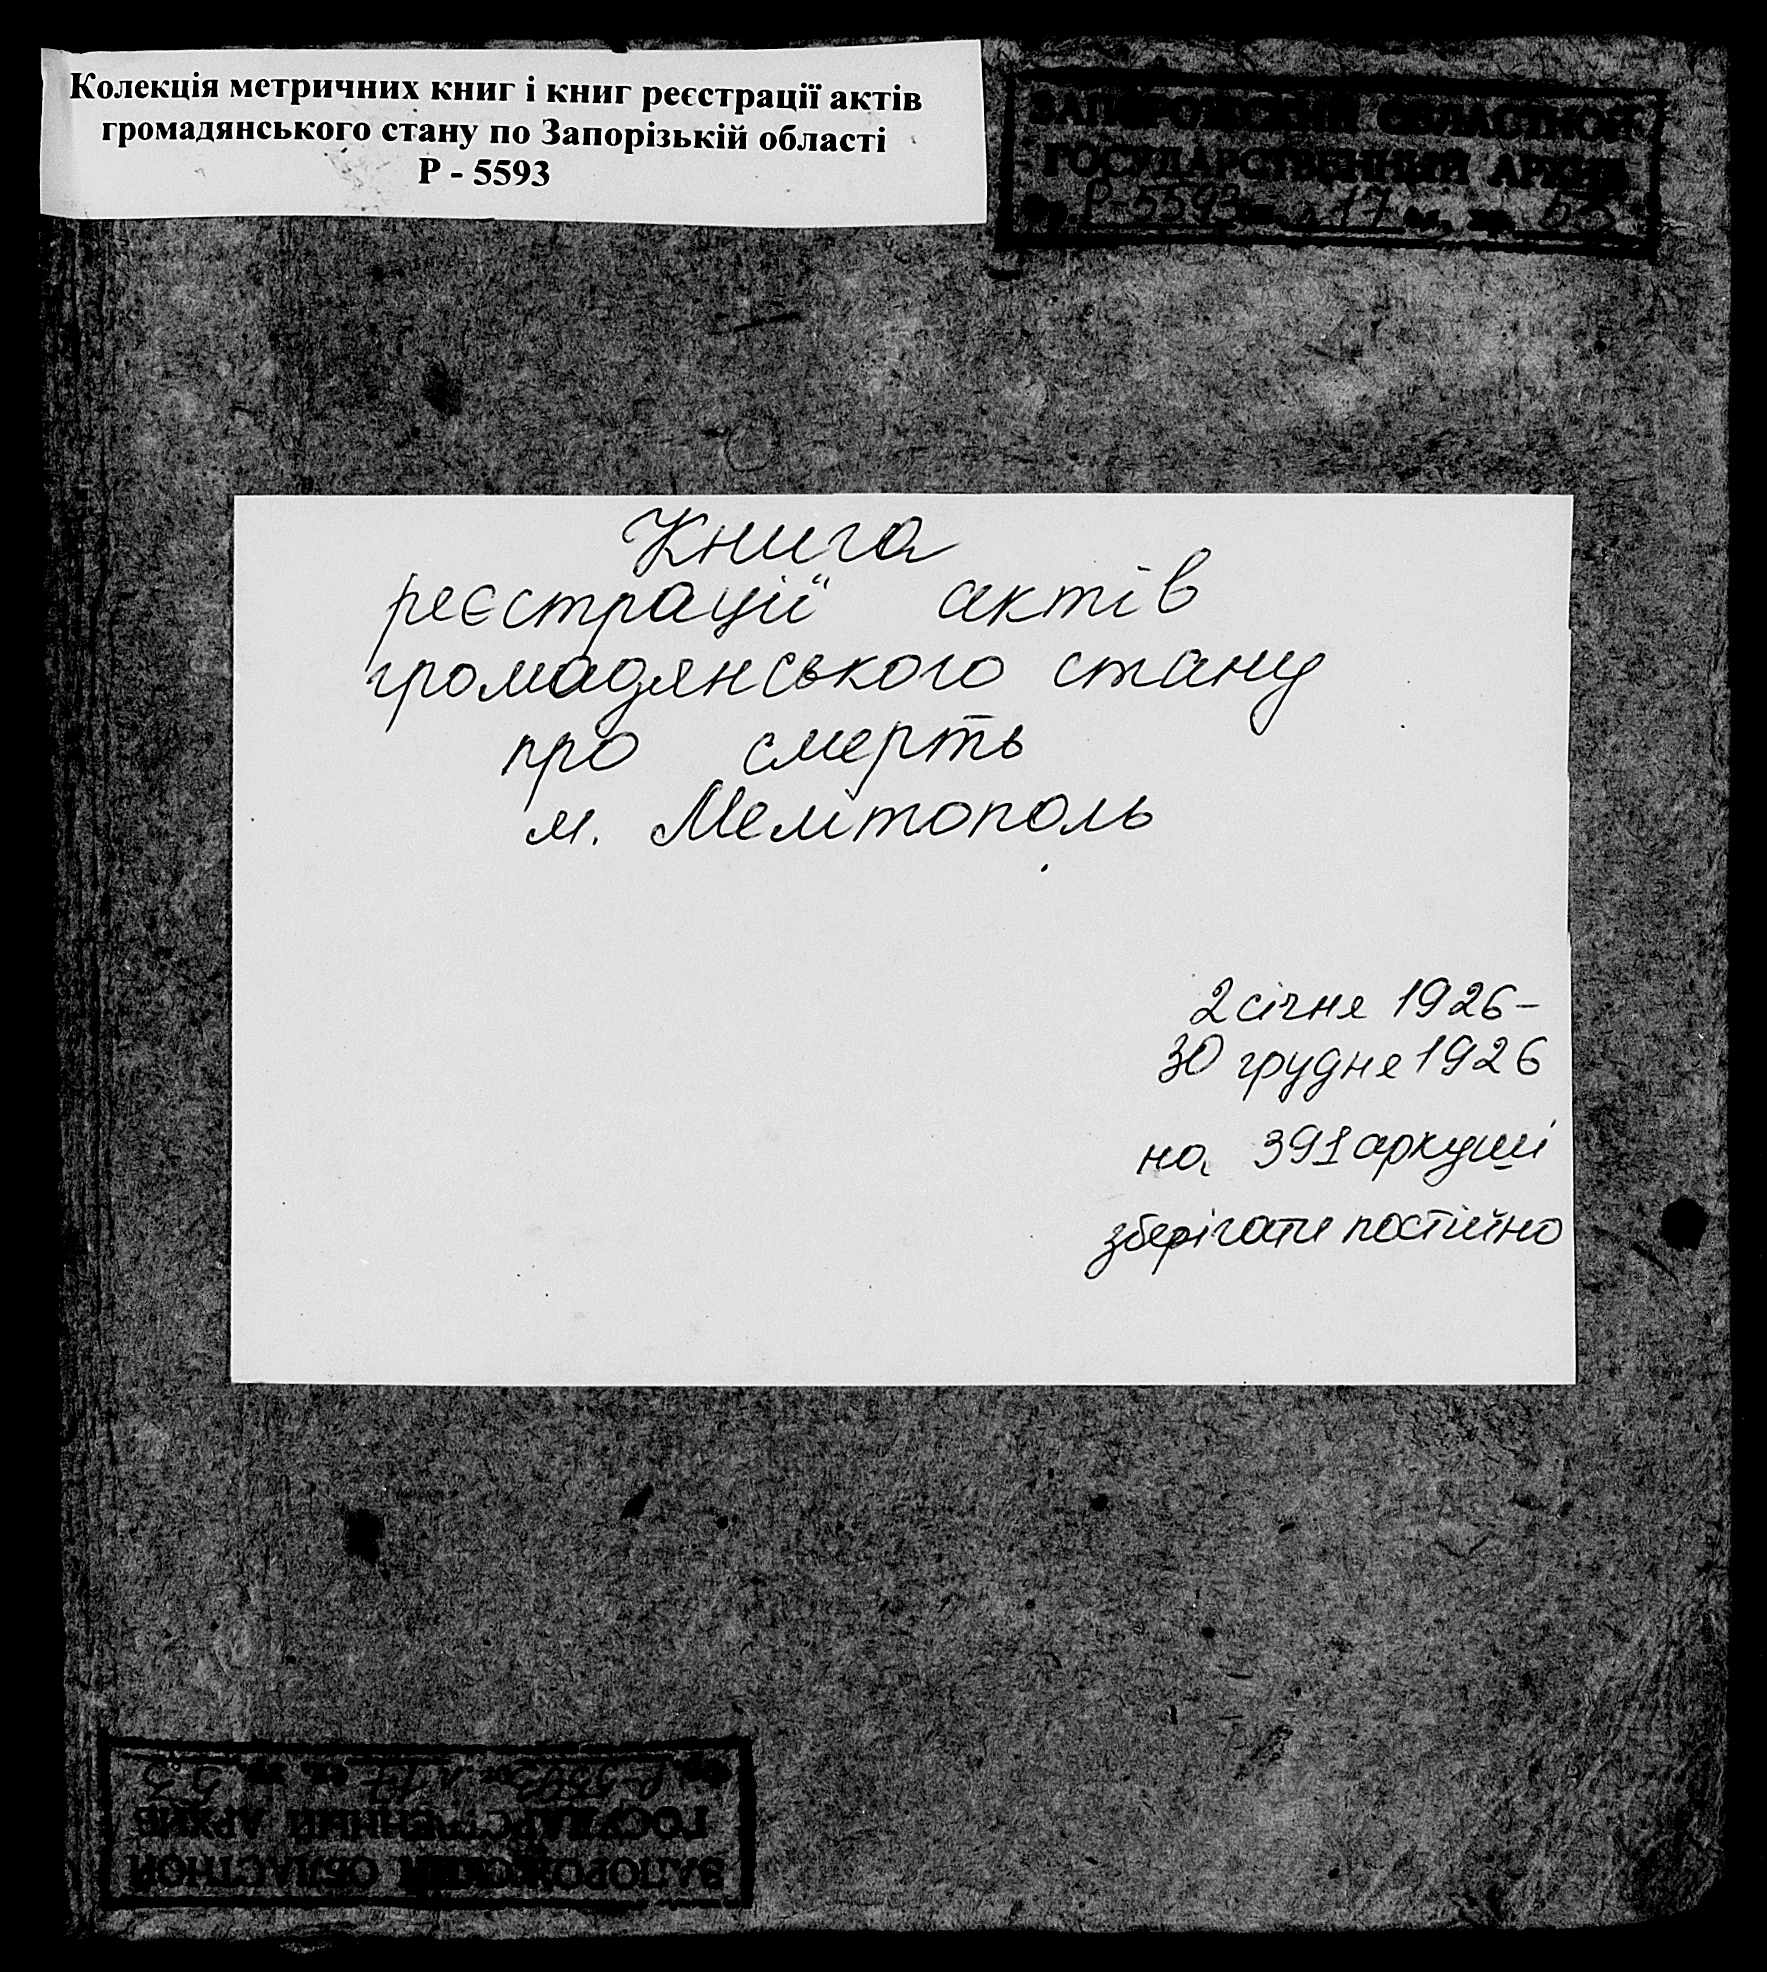 Колекція метричних книг і книг реєстрації актів
громадянського стану по Запорізькій області
Р - 5593
ЗАПОРОЖСКИЙ ОБЛАСТНОЙ
ГОСУДАРСТВЕННЫЙ АРХИВ
Р-5593 оп. 17 ед. хр. 53
Книга
реєстрації актів
громадянського стану
про смерть
м. Мелітополь
2 січня 1926 –
30 грудня 1926
на 391 аркуші
зберігати постійно
ЗАПОРОЖСКИЙ ОБЛАСТНОЙ
ГОСУДАРСТВЕННЫЙ АРХИВ